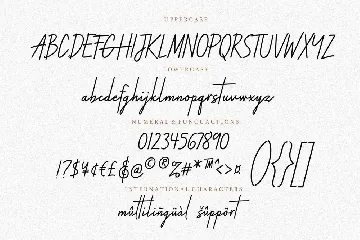 UPPERCASE
ABCDEFGHIJKLMNOPQRSTUVWXYZ
LOWERCASE
abcdefghijklmnopqrstuvwxyz
NUMERAL & PUNCTUATIONS
01234567890
1?$¥¢££$@©®%#*™^<>¤ (){}[]
INTERNATIONAL CHARACTERS
múltilingüàl šûppört